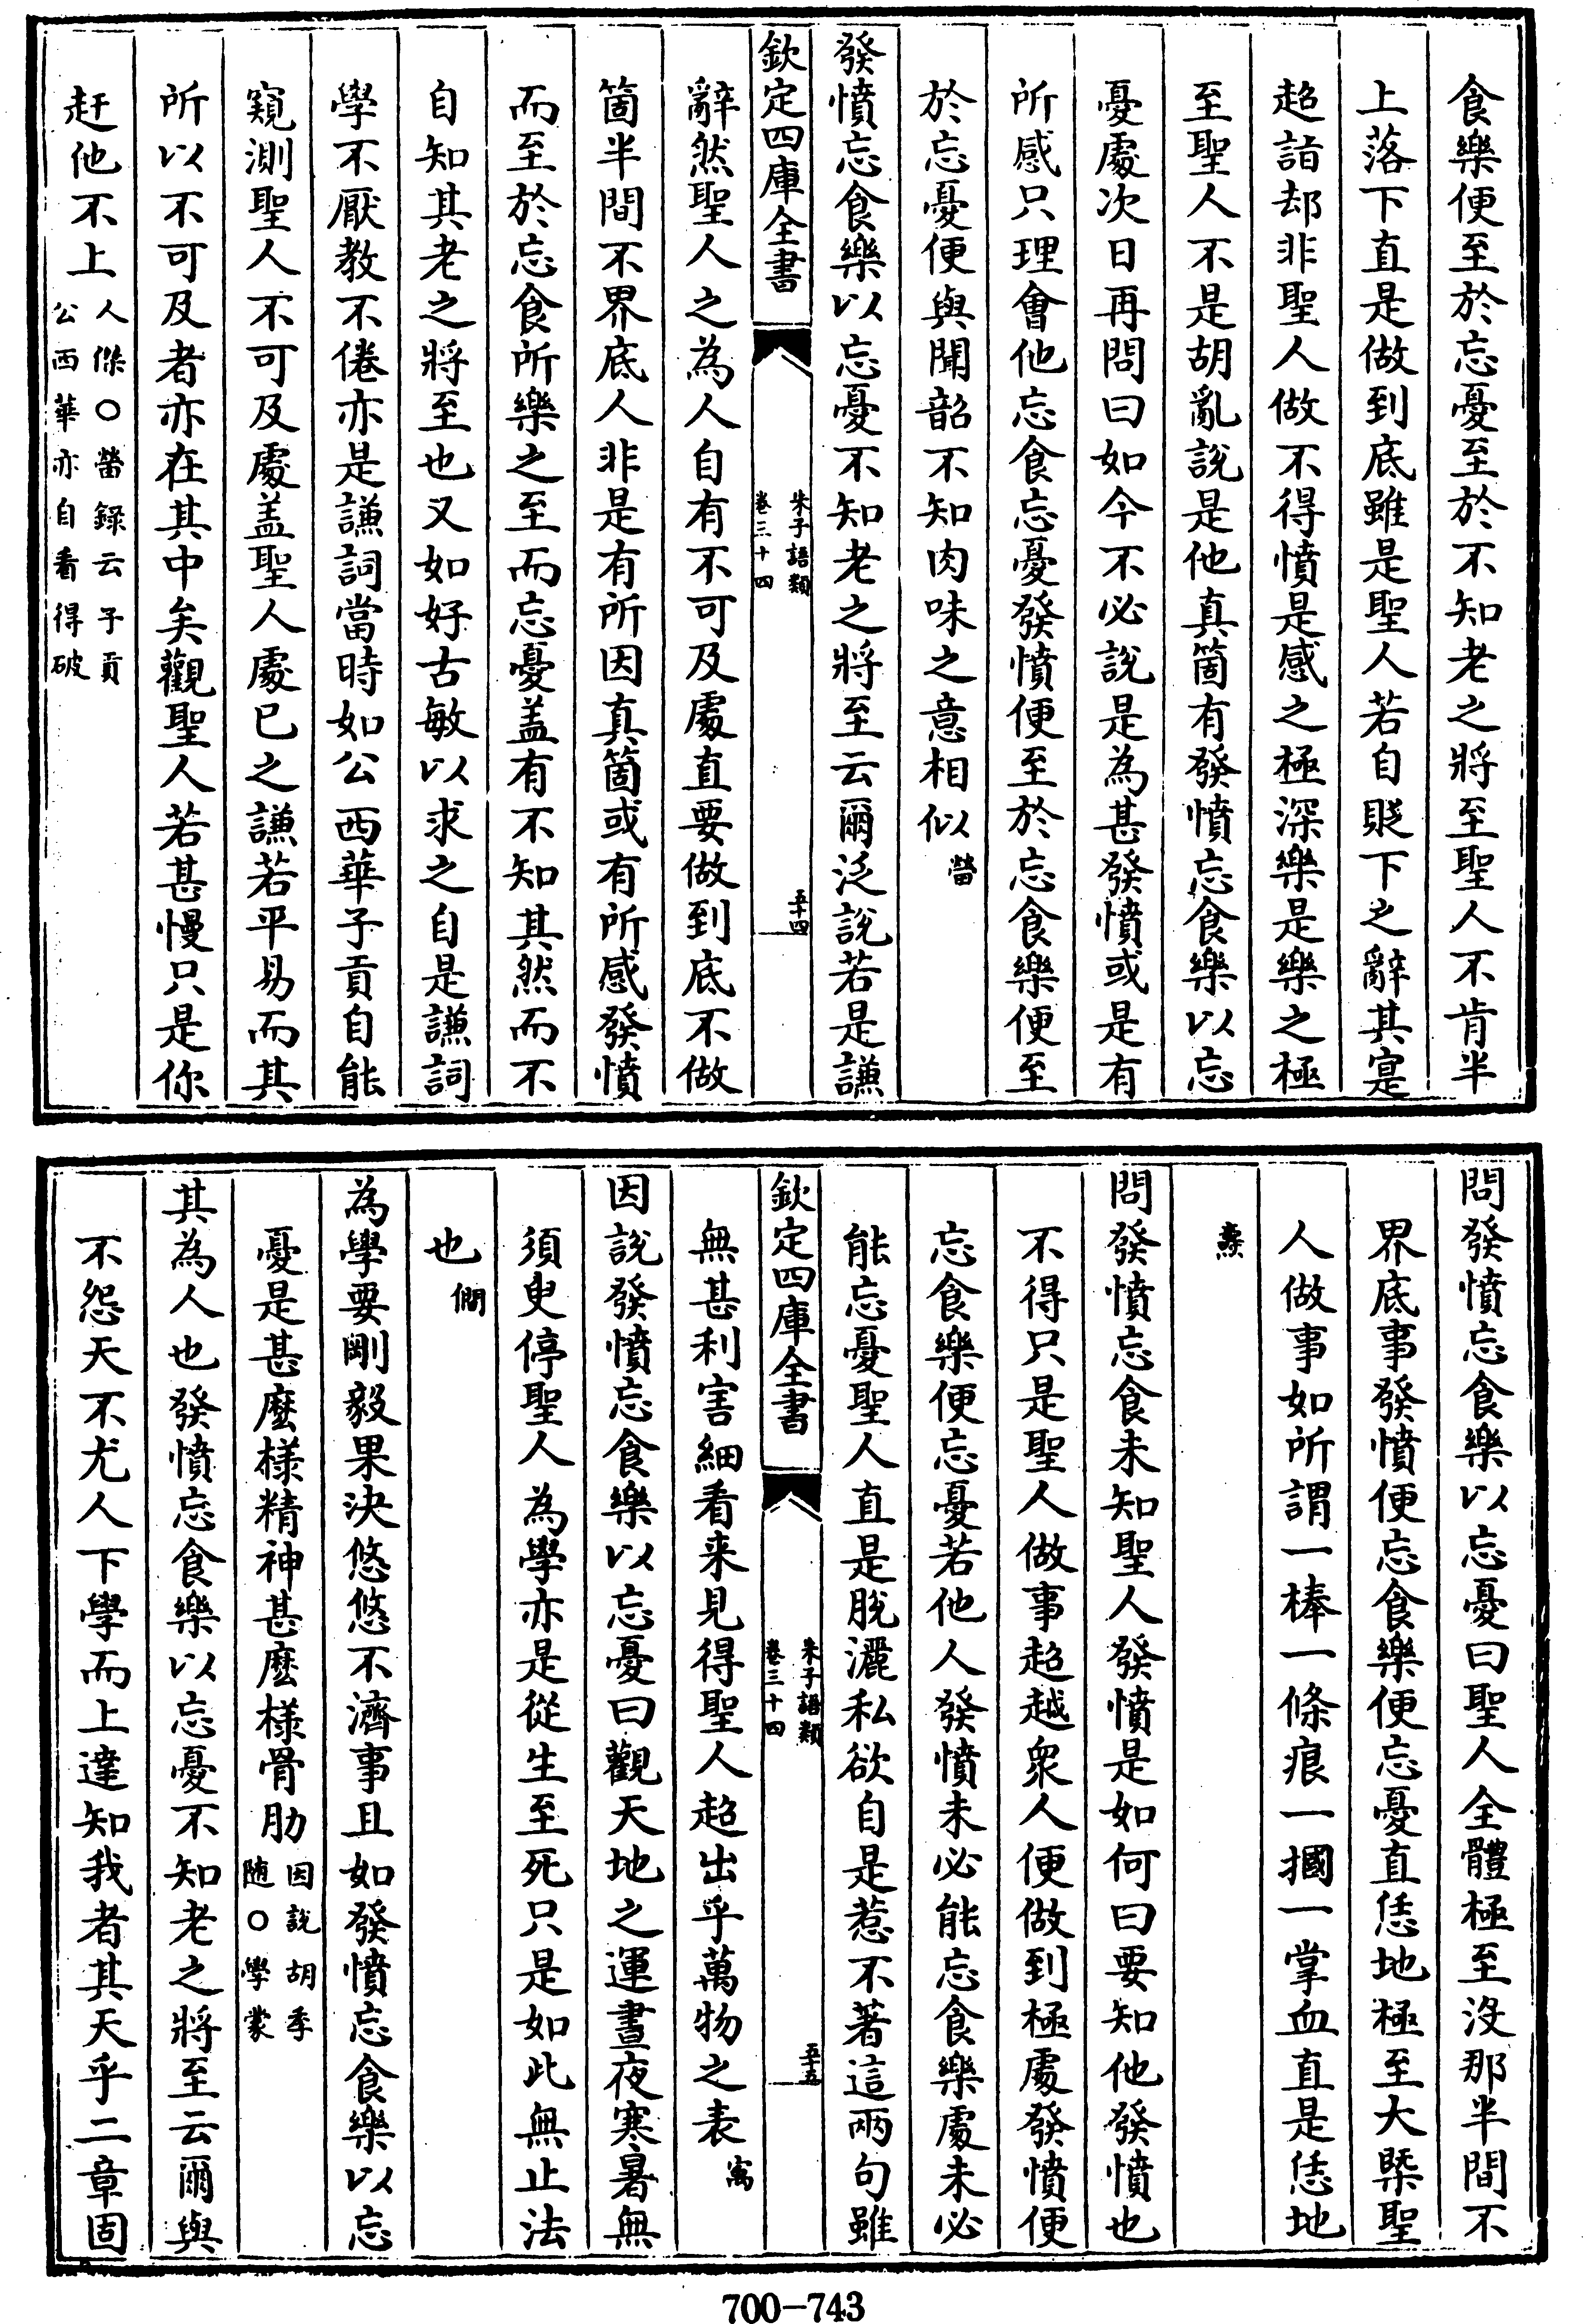 食樂便至於忘憂至於不知老之將至聖人不肯半
上落下直是做到底雖是聖人若自貶下之辭其寔
超詣却非聖人做不得憤是感之極深樂是樂之極
至聖人不是胡亂說是他真箇有發憤忘食樂以忘
憂處次日再問曰如今不必說是為甚發憤或是有
所感只理會他忘食忘憂發憤便至於忘食樂便至
於忘憂便與聞韶不知肉味之意相似㽦
發憤忘食樂以忘憂不知老之將至云爾泛說若是謙
欽定四庫全書
朱子語類
卷三十四
五十四
辭然聖人之為人自有不可及處直要做到底不做
箇半間不界底人非是有所因真箇或有所感發憤
而至於忘食所樂之至而忘憂盖有不知其然而不
自知其老之將至也又如好古敏以求之自是謙詞
學不厭教不倦亦是謙詞當時如公西華子貢自能
窺測聖人不可及處盖聖人處已之謙若平易而其
所以不可及者亦在其中矣觀聖人若甚慢只是你
赶他不上人傑○㽦錄云子貢
公西華亦自看得破
問發憤忘食樂以忘憂曰聖人全體極至沒那半間不
界底事發憤便忘食樂便忘憂直恁地極至大槩聖
人做事如所謂一棒一條痕一摑一掌血直是恁地
燾
問發憤忘食未知聖人發憤是如何曰要知他發憤也
不得只是聖人做事超越衆人便做到極處發憤便
忘食樂便忘憂若他人發憤未必能忘食樂處未必
能忘憂聖人直是脫灑私欲自是惹不著這兩句雖
欽定四庫全書
朱子語類
卷三十四
五十五
無甚利害細看来見得聖人超出乎萬物之表寓
因說發憤忘食樂以忘憂曰觀天地之運晝夜寒暑無
須臾停聖人為學亦是從生至死只是如此無止法
也僩
為學要剛毅果決悠悠不濟事且如發憤忘食樂以忘
憂是甚麽様精神甚麽様骨肋因說胡季
随○學蒙
其為人也發憤忘食樂以忘憂不知老之將至云爾與
不怨天不尤人下學而上達知我者其天乎二章固
700-743